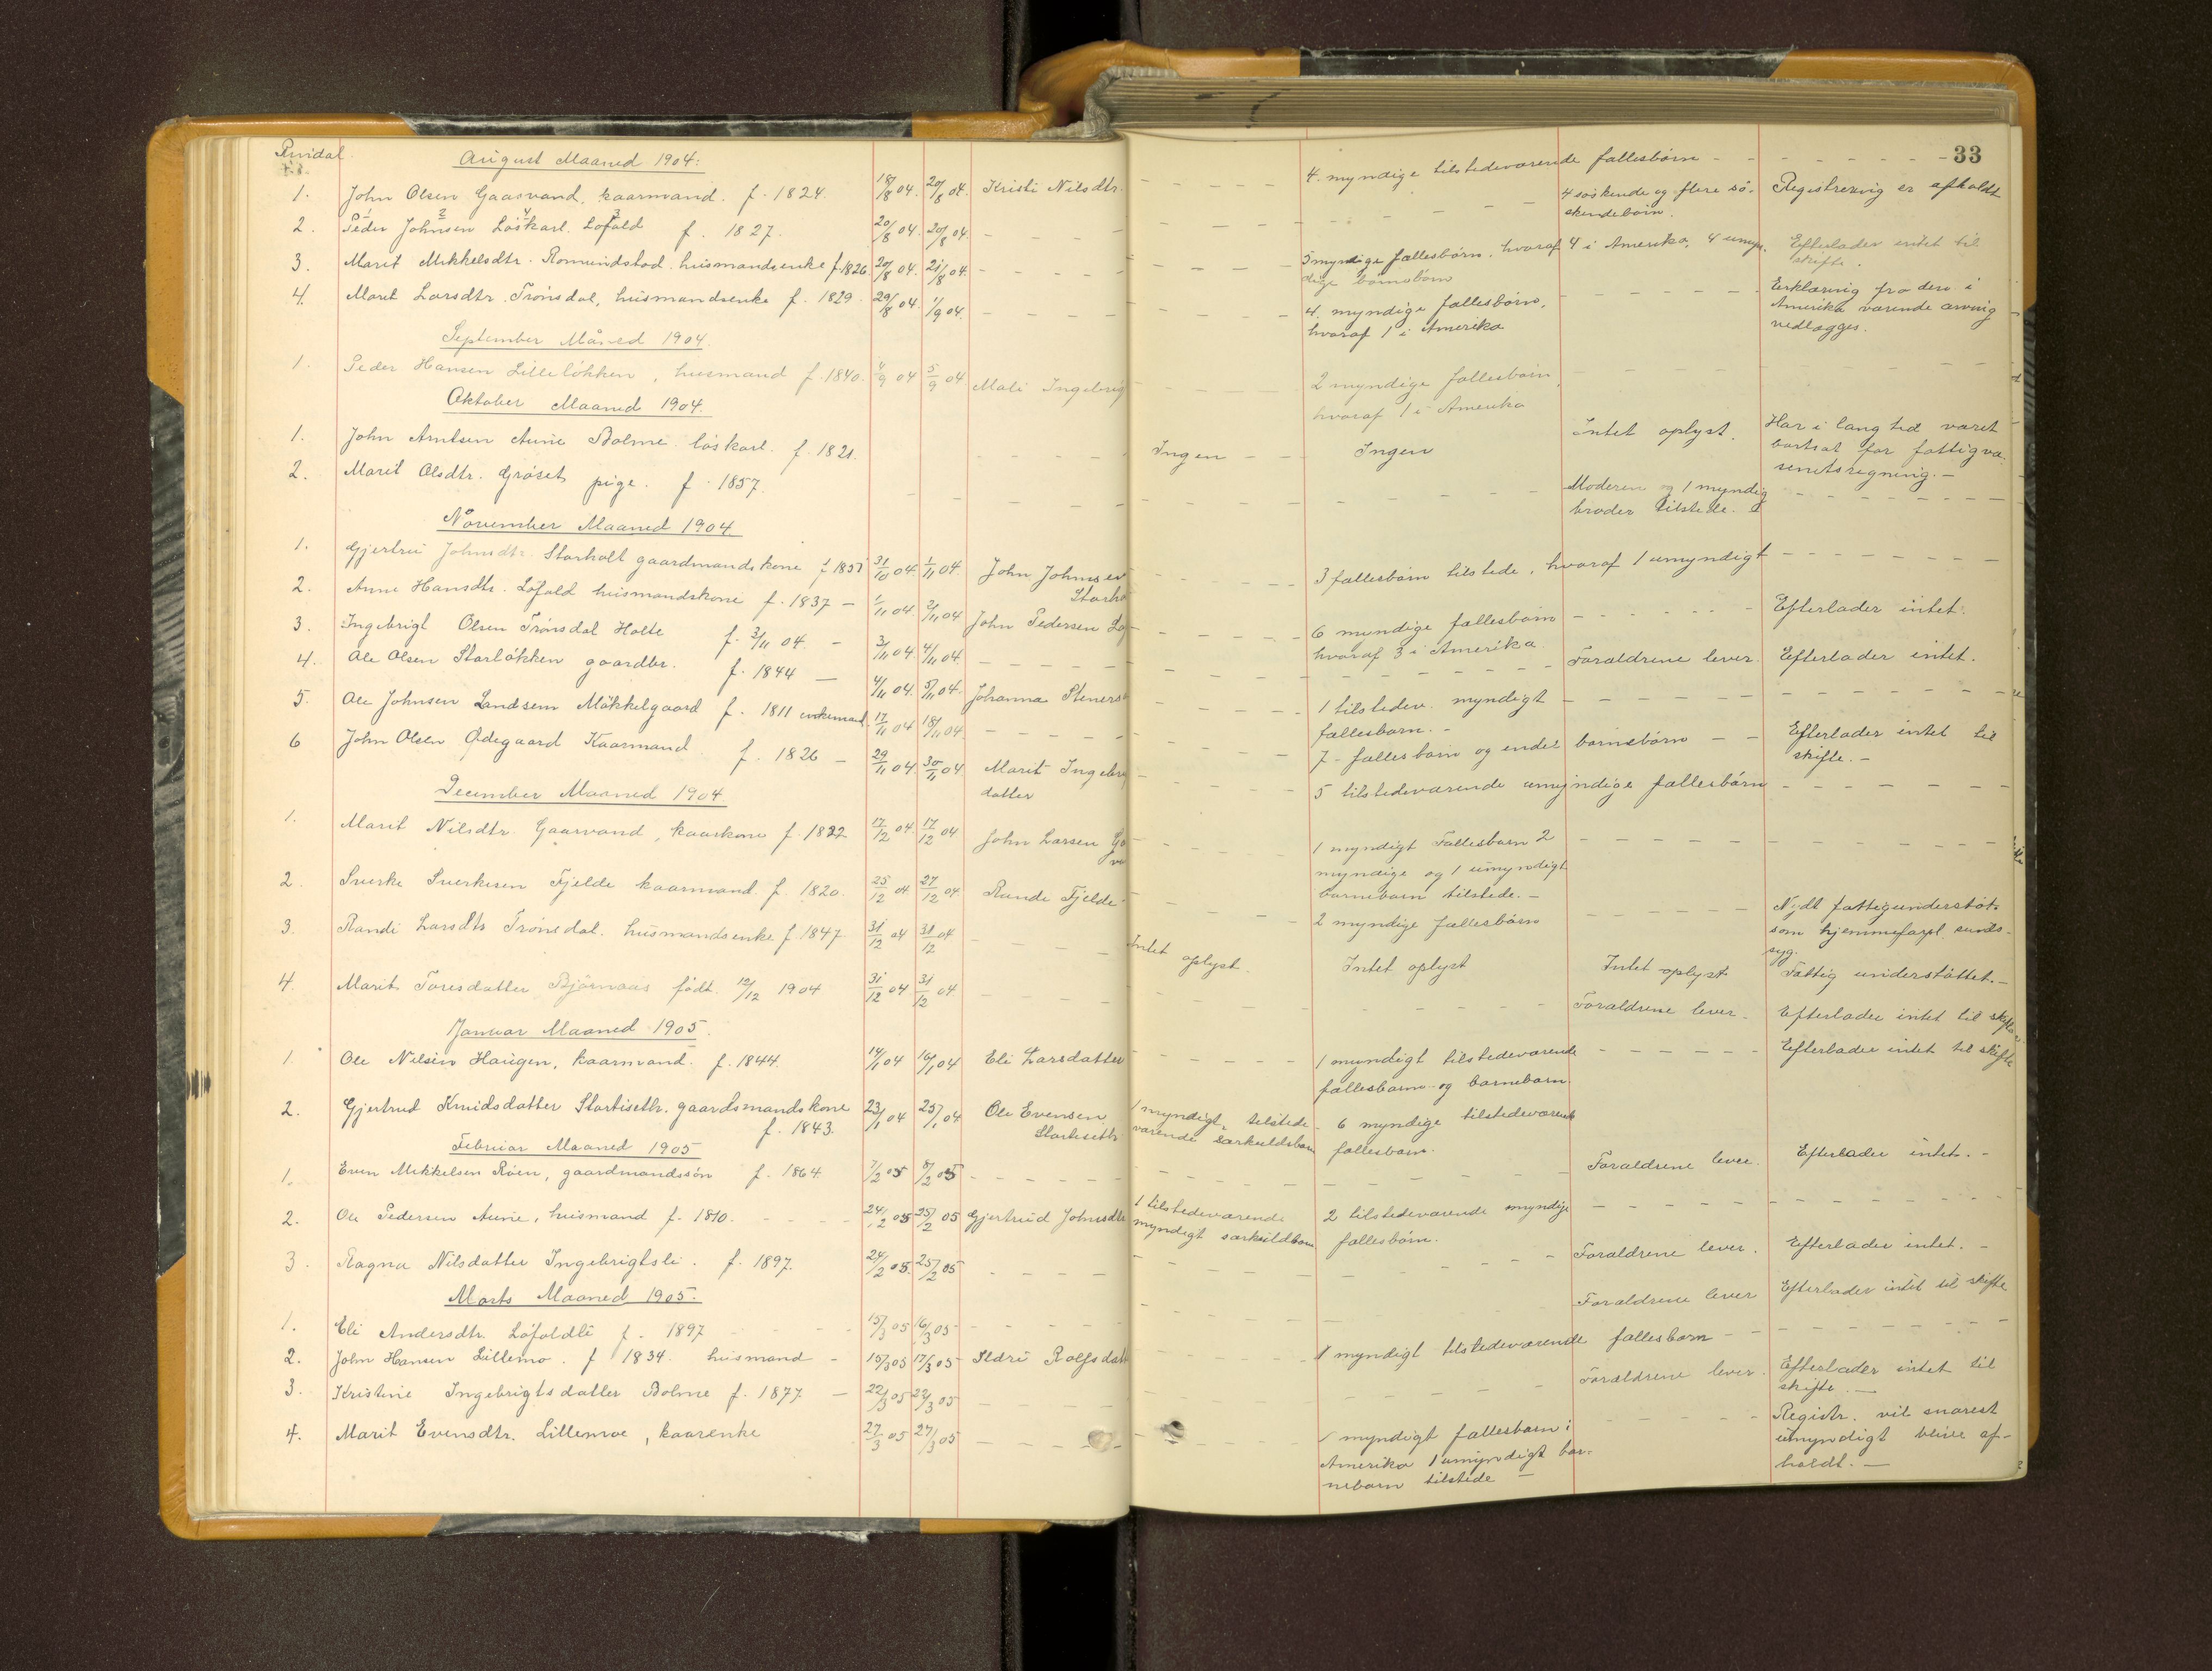 Rindal
August Maaned 1904.
33
1. John Olsen Gaasvand, kaarmand. f. 1824. 18/8 04. 20/8 04. Kristi Nilsdtr. - - - - 4. myndige tilstedeværende fællesbørn - - - - - - - -
2. Peder Johnsen Løskarl. Løfald f. 1827. 20/8 04. 20/8 04. - - - - - - - 4 søskende og flere sø- Registrering er afholdt
skendebørn.
3. Marit Mikkelsdtr. Romundstad. husmandsenke f. 1826. 20/8 04. 21/8 04. - - - - 3 myndige fællesbørn, hvoraf 4 i Amerika, 4 umyn- Efterlader intet til
dige børnebørn skifte.
4. Marit Larsdtr. Trønsdal, husmandsenke f. 1829. 29/8 04. 1/9 04. - - - - 4. myndige fællesbørn, - - - - - Erklæring fra den i
hvoraf 1 i Amerika Amerika værende arving
vedlægges.
September Måned 1904.
1. Peder Hansen Lilleløkken, husmand f. 1840. 4/9 04 5/9 04. Mali Ingebrig - - - 2 myndige fællesbørn, - - - - -
hvoraf 1 i Amerika
Oktober Maaned 1904.
1. John Arntsen Aune Bolme løskarl. f. 1821. - - - - Ingen - - Ingen Intet oplyst. Har i lang tid været
bortsat for fattigvæ-
senetsregning. -
2. Marit Olsdtr. Grøset, pige. f. 1857. - - - - - - - - Moderen og 1 myndig - - - - -
broder tilstede.
November Maaned 1904.
1. Gjertru Johnsdtr. Storholt gaardmandskone f. 31/10 04. 1/11 04. John Johnsen 3 fællesbørn tilstede, hvoraf 1 umyndigt - - - - -
Storho
2. Anne Hansdtr. Løfald husmandskone f. 1837 - 1/11 04. 2/11 04 John Pedersen Lø - - - - 6 myndige fællesbørn - - - - Efterlader intet.
hvoraf 3 i Amerika.
3. Ingebrigt Olsen Trønsdal Holte f. 3/11 04. - 3/11 04 4/11 04. - - - - - - Forældrene lever. Efterlader intet.
4. Ole Olsen Storløkken gaardbr. f. 1844 - 4/11 04. 5/11 04. Johanna Steners - - - 1 tilstedev. myndigt - - - - -
fællesbarn. -
5. Ole Johnsen Landsem Møkkelgaard f. 1811 enkemand. 17/11 04 18/11 04. - - - - 7 - fællesbørn og endel børnebørn - - Efterlader intet til
skifte. -
6 John Olsen Ødegaard Kaarmand. f. 1826 - 29/11 04 30/11 04 Marit Ingebri - - - 5 tilstedeværende umyndige fællesbørn - - - - -
datter
December Maaned 1904.
1. Marit Nilsdtr. Gaasvand, kaarkone f. 1822 17/12 04. 17/12 04 John Larsen Ga - - - 1 myndigt Fællesbarn 2 - - - - -
myndige og 1 umyndigt
barnebarn tilstede. -
2. Sverke Sverkesen Fjelde kaarmand. f. 1820. 25/12 04 27/12 04 Rande Fjelde - - - - 2 myndige fællesbørn - - - - - Nydt fattigunderstøt.
som hjemmefarpl. sinds-
syg.
3. Randi Larsdtr Trønsdal. husmandsenke f. 1847 31/12 04 31/12 04 - - - - Intet oplyst. Intet oplyst Intet oplyst Fattig understøttet. -
4. Marit Toresdatter Bjørnaas født 12/12 1904 31/12 04 31/12 04 - - - - - - - - Forældrene lever. Efterlader intet til skifte
Januar Maaned 1905.
1. Ole Nilsen Haugen, kaarmand. f. 1844. 14/1 04 16/1 04 Eli Larsdatter - - - - 1 myndigt tilstedeværende - - - - - Efterlader intet til skifte
fællesbarn og barnebarn
2. Gjertrud Knudsdatter Stortiseth. gaardsmandskone 23/1 04 25/1 04 Ole Evensen 1 myndigt, tilstede- 6 myndige tilstedeværende
f. 1843. Stortiseth værende særkuldsbarn fællesbørn.
Februar Maaned 1905
1. Even Mikkelsen Røen, gaardmandssøn f. 1864. 7/2 05 8/2 05 - - - - - - - - Forældrene lever. Efterlader intet. -
2. Ole Pedersen Aune, husmand f. 1810. - - - 24/2 05 25/2 05 Gjertrud Johnsdtr 1 tilstedeværende 2 tilstedeværende myndige - - - - -
myndigt særkuldbarn fællesbørn.
3. Ragna Nilsdatter Ingebrigtsli. f. 1897. 24/2 05. 25/2 05 - - - - - - - - Forældrene lever. Efterlader intet. -
Marts Maaned 1905.
1. Eli Andersdtr. Løfaldli f. 1897 - - - 15/3 05 16/3 05 - - - - - - - Forældrene lever Efterlader intet til skifte
2. John Hansen Lillemo. f 1834. husmand - 15/3 05 17/3 05 - Sldri Rolfsdat - - - 1 myndigt tilstedeværende fællesbarn - - - - -
3. Kristine Ingebrigtsdatter Bolme f. 1877. - 22/3 05 24/3 05 - - - - - - - Forældrene lever. Efterlader intet til
skifte. -
4. Marit Evensdtr. Lillemoe, kaarenke 27/3 05 27/3 05 - - - - 1 myndigt fællesbarn i - - - Registr. vil snarest
Amerika 1 umyndigt bar- umyndigt blive af-
nebarn tilstede - holdt. -